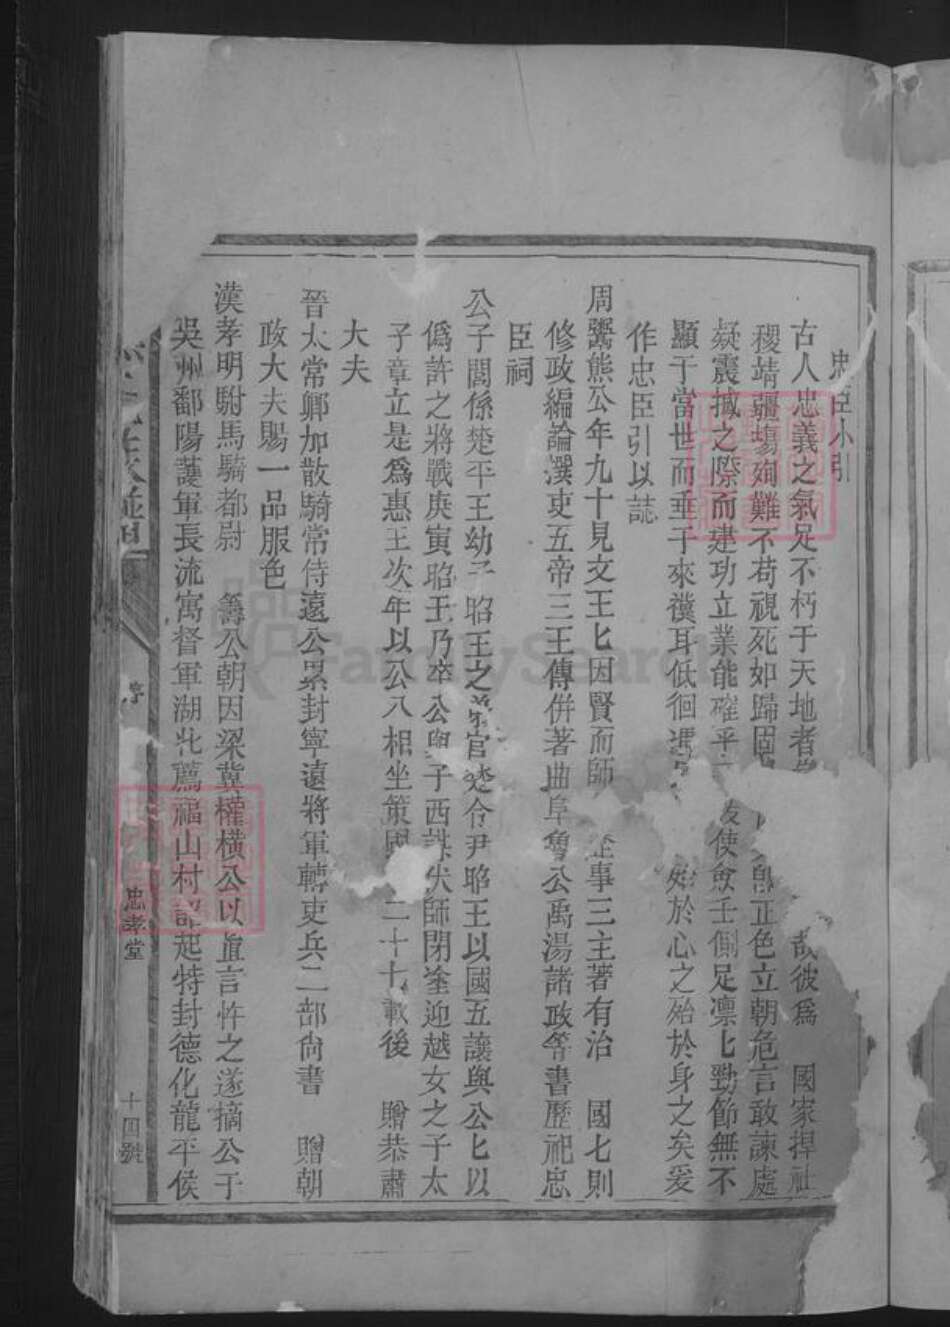 忠臣小引
古人忠義之氣足不朽于天地者 哉彼爲 國家捍社
稷靖疆塲殉難不苟視死如歸固 正色立朝危言敢諫處
疑震撼之際而建功立業能確乎 拔使僉壬側足凛匕勁節無不
顯于當世而垂于來禩耳低徊 於心之殆於身之矣爰
作忠臣引以誌
周鬻熊公年九十見文王匕因賢而師 企事三主著有治 國七則
修政編論譔吏五帝三王傳併著曲阜魯公禹湯諸政等書歷祀忠
臣祠
公子閭係楚平王幼子昭王之弟官楚令尹昭王以國五讓與公匕以
僞許之將戰庚寅昭王乃卒公與子西謀伏師閉塗迎越女之子太
子章立是爲惠王次年以公八相坐策國 二十七載後 贈恭肅
大夫
晉太常卿加散騎常侍遠公累封寧遠將軍轉吏兵二部尙書 贈朝
政大夫賜一品服色
漢孝明駙馬騎都尉 籌公朝因梁冀權橫公以直言忤之遂摘公于
吳州鄱陽護軍長流寓督軍湖北薦福山村 起特封德化龍平侯
序
忠孝堂
十四號
FamilySearch